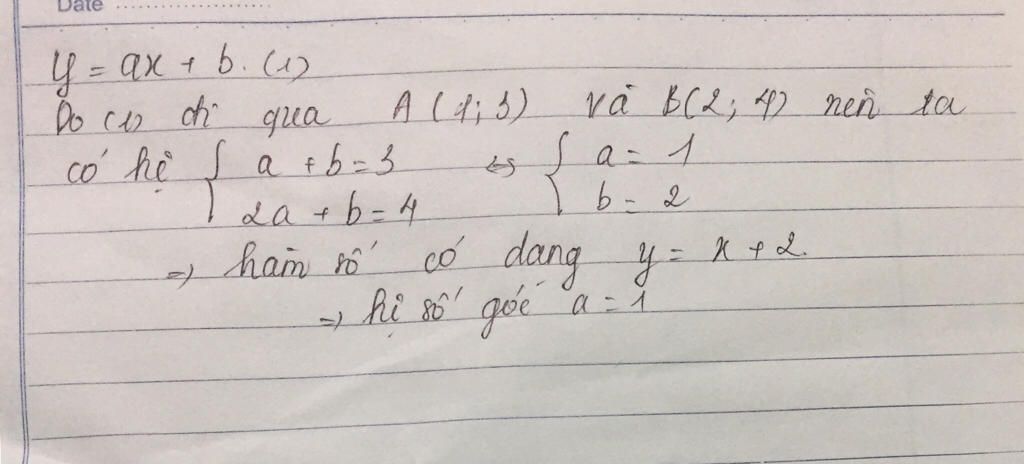 Date
y = ax + b. (1)
Do (1) đi qua A (1; 3) và B(2; 4) nên ta
có hệ { a + b = 3 ⇔ { a = 1
2a + b = 4 b = 2
=> hàm số có dang y = x + 2.
=> hệ số góc a = 1